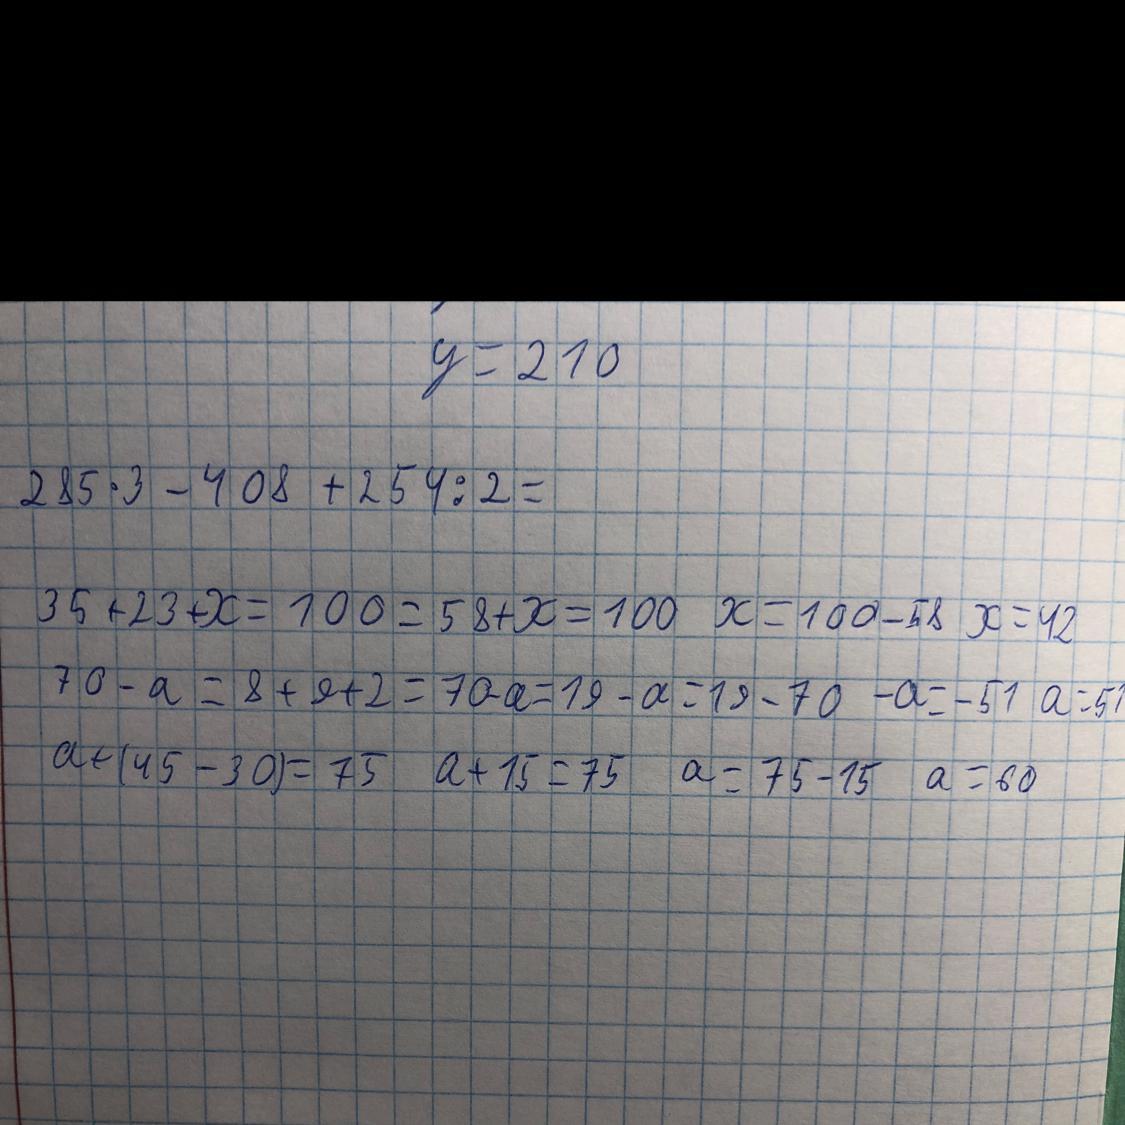 y = 210
285·3 - 408 + 254 : 2 =
35 + 23 + x = 100 = 58 + x = 100 x = 100 - 58 x = 42
70 - a = 8 + 9 + 2 = 70 - a = 19 - a = 19 - 70 - a = - 51 a = 51
a + (45 - 30) = 75 a + 15 = 75 a = 75 - 15 a = 60